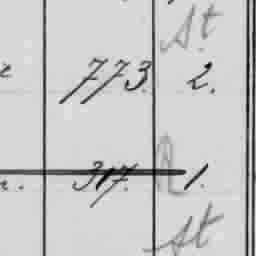 St
773. 2.
317. R 1.
St